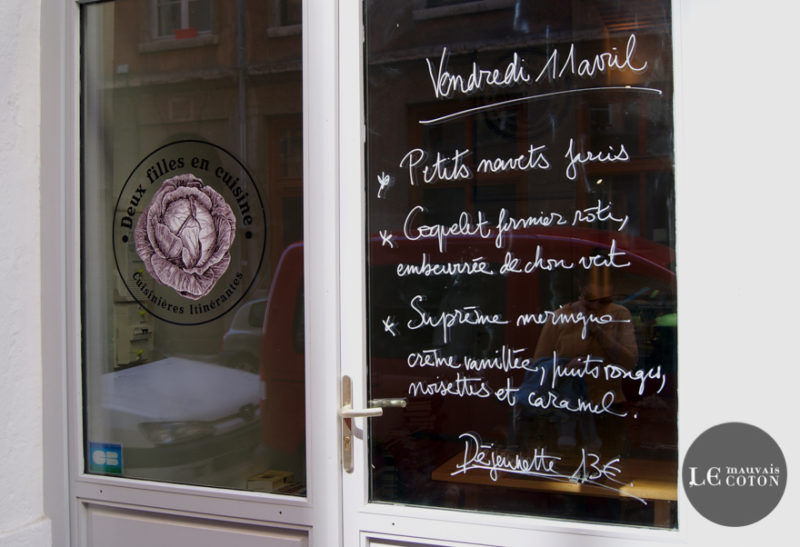 • Deux filles en cuisine •
Cuisinières Itinérantes
CB
Vendredi 11 avril
* Petits navets farcis
* Coquelet fermier rôti,
embeurrée de chou vert
* Suprême meringue
crème vanillée, fruits rouges,
noisettes et caramel.
Déjeunette 13€
LE mauvais
COTON